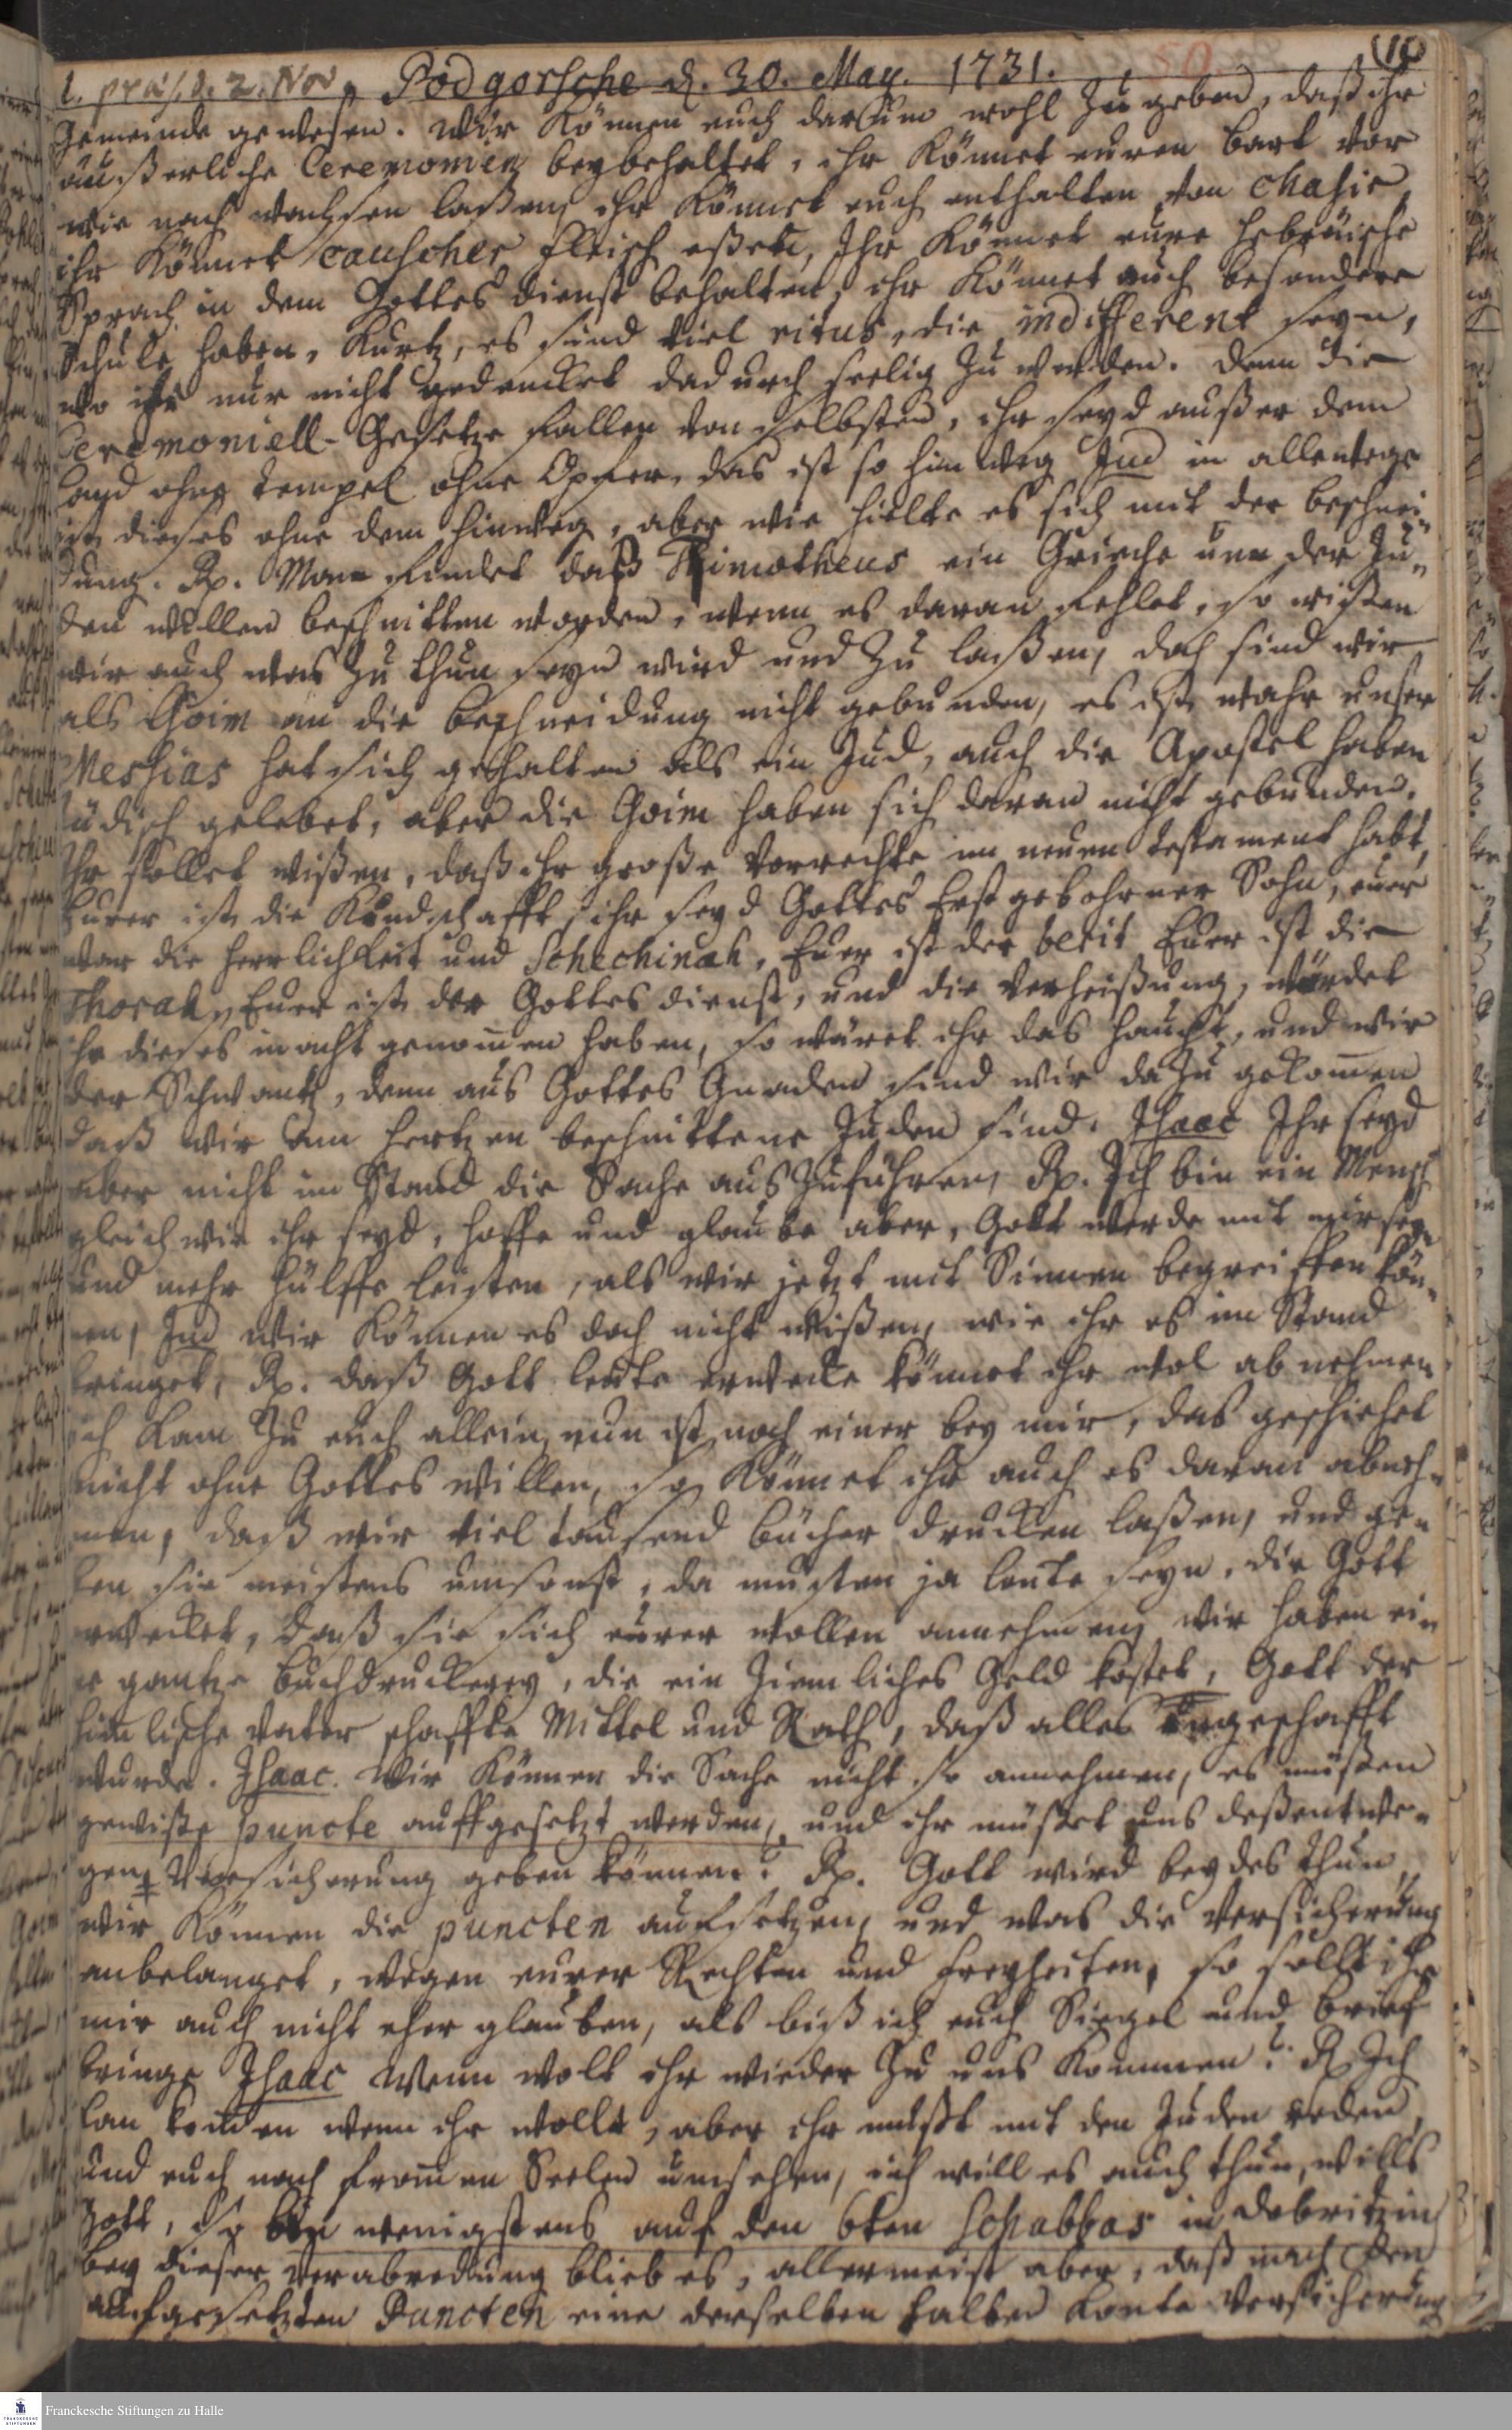 l. präs. d. 2. Nov. Podgorsche d. 30. May. 1731. 50. (11)
Gemeinde gewesen. Wir können euch darum wohl zugeben, daß ihr
äußerliche Ceremonien beybehaltet, ihr könnet euren bart vor
wie nach wachsen laßen, ihr könnet euch enthalten von Chasir,
ihr könnet causcher fleisch eßen, Ihr könnet eure hebräische
Sprach in dem Gottesdienst behalten, ihr könnet auch besondere
Schule haben, kurtz, es sind viel ritus, die indifferent seyn,
wo ihr nur nicht gedencket dadurch seelig zu werden. denn die
Ceremoniell-Gesetze fallen von selbsten, ihr seyd außer dem
Land ohne tempel ohne Opfer, das ist so hinweg Jud in allewege
ist dieses ohne dem hinweg, aber wie hielte es sich mit der beschnei-
dung. Rp. Man findet daß Thimotheus ein Grieche um der Ju-
den willen beschnitten worden, wenn es daran fehlet, so wißen
wir auch was zu thun seyn wird und zu laßen, doch sind wir
als Goim an die beschneidung nicht gebunden, es ist wahr unser
Messias hat sich gehalten als ein Jud, auch die Apostel haben
jüdisch gelebet, aber die Goim haben sich daran nicht gebunden.
Ihr sollet wißen, daß ihr große Vorrechte im neuen testament habt,
Eurer ist die Kindschafft, ihr seyd Gottes Erstgebohrner Sohn, euer
war die herrlichkeit und Schechinah, Euer ist der berit Euer ist die
Thorah, Euer ist der Gottesdienst, und die Verheißung, würdet
ihr dieses in acht genommen haben, so wäret ihr das haupt, und wir
der Schwantz, denn aus Gottes Gnaden sind wir dazu gekommen
daß wir am hertzen beschnittene Juden sind. Isaac Ihr seyd
aber nicht im Stand die Sache auszuführen, Rp. Ich bin ein Mensch
gleich wie ihr seyd, hoffe und glaube aber, Gott werde mit mir seyn
und mehr hülffe leisten, als wir jetzt mit Sinnen begreiffen kön-
nen, Jud wir können es doch nicht wißen, wie ihr es im Stand
bringet, Rp. daß Gott leute erwecke könnet ihr wol abnehmen
ich kam zu euch allein, nun ist noch einer bey mir, das geschiehet
nicht ohne Gottes willen, so könnet ihr auch es daran abneh-
men, daß wir viel tausend bücher drucken laßen, und ge-
ben sie meistens umsonst, da musten ja leute seyn, die Gott
erwecket, daß sie sich eurer wollen annehmen, wir haben ei-
ne gantze buchdruckerey, die ein ziemliches Geld kostet, Gott der
himlische Vater schaffte Mittel und Rath, daß alles angeschafft
wurde. Isaac. Wir können die Sache nicht so annehmen, es müßen
gewiße puncte auffgesetzt werden, und ihr müßet uns deßentwe-
gen Versicherung geben können? Rp. Gott wird beydes thun,
wir können die puncten aufsetzen, und was die Versicherung
anbelanget, wegen eurer Rechten und freyheiten, so sollt ihr
mir auch nicht eher glauben, als biß ich euch Siegel und brief
bringe Isaac Wenn wolt ihr wieder zu uns kommen? Rp. Ich
kan kommen wenn ihr wollt, aber ihr müßt mit den Juden reden,
und euch nach frommen Seelen umsehen, ich will es auch thun, wills
Gott, so bin wenigstens auf den 6ten Schabbas in debritzin
bey dieser Verabredung blieb es, allermeist aber, daß nach den
aufgesetzten Puncten eine derselben halber konte Versicherung
Franckesche Stiftungen zu Halle